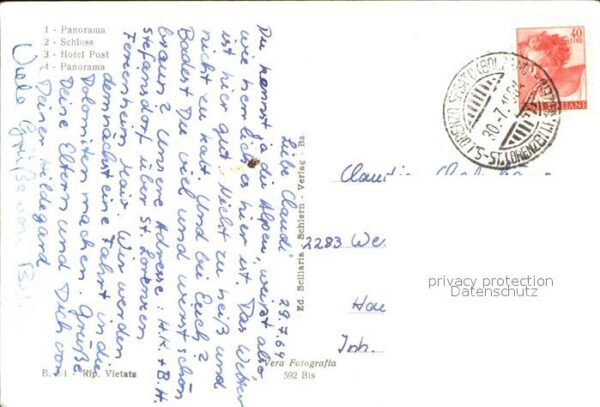 1 - Panorama
2 - Schloss
3 - Hotel Post
4 - Panorama
Liebe Claudi! 29.7.64
Du kennst ja die Alpen, weißt also
wie herrlich es hier ist. Das Wetter
ist hier gut. Nicht zu heiß und
nicht zu kalt. Und bei Euch?
Badest Du viel und wirst schön
braun? Unsere Adresse: H.K. + B.H.
Stefansdorf über St. Lorenzen
Ferienheim Mair. Wir werden
demnächst eine Fahrt in die
Dolomiten machen. Grüße
Deine Eltern und Dich von
Deiner Hildegard
Viele Grüße von
Ed. Sciliaria - Schlern - Verlag - Bz.
Vera Fotografia
592 Bis
B. 81 - Rip. Vietata
Claudia
2283 We
Inh.
40
LIRE
ITALIANE
30.7.1964
privacy protection
Datenschutz